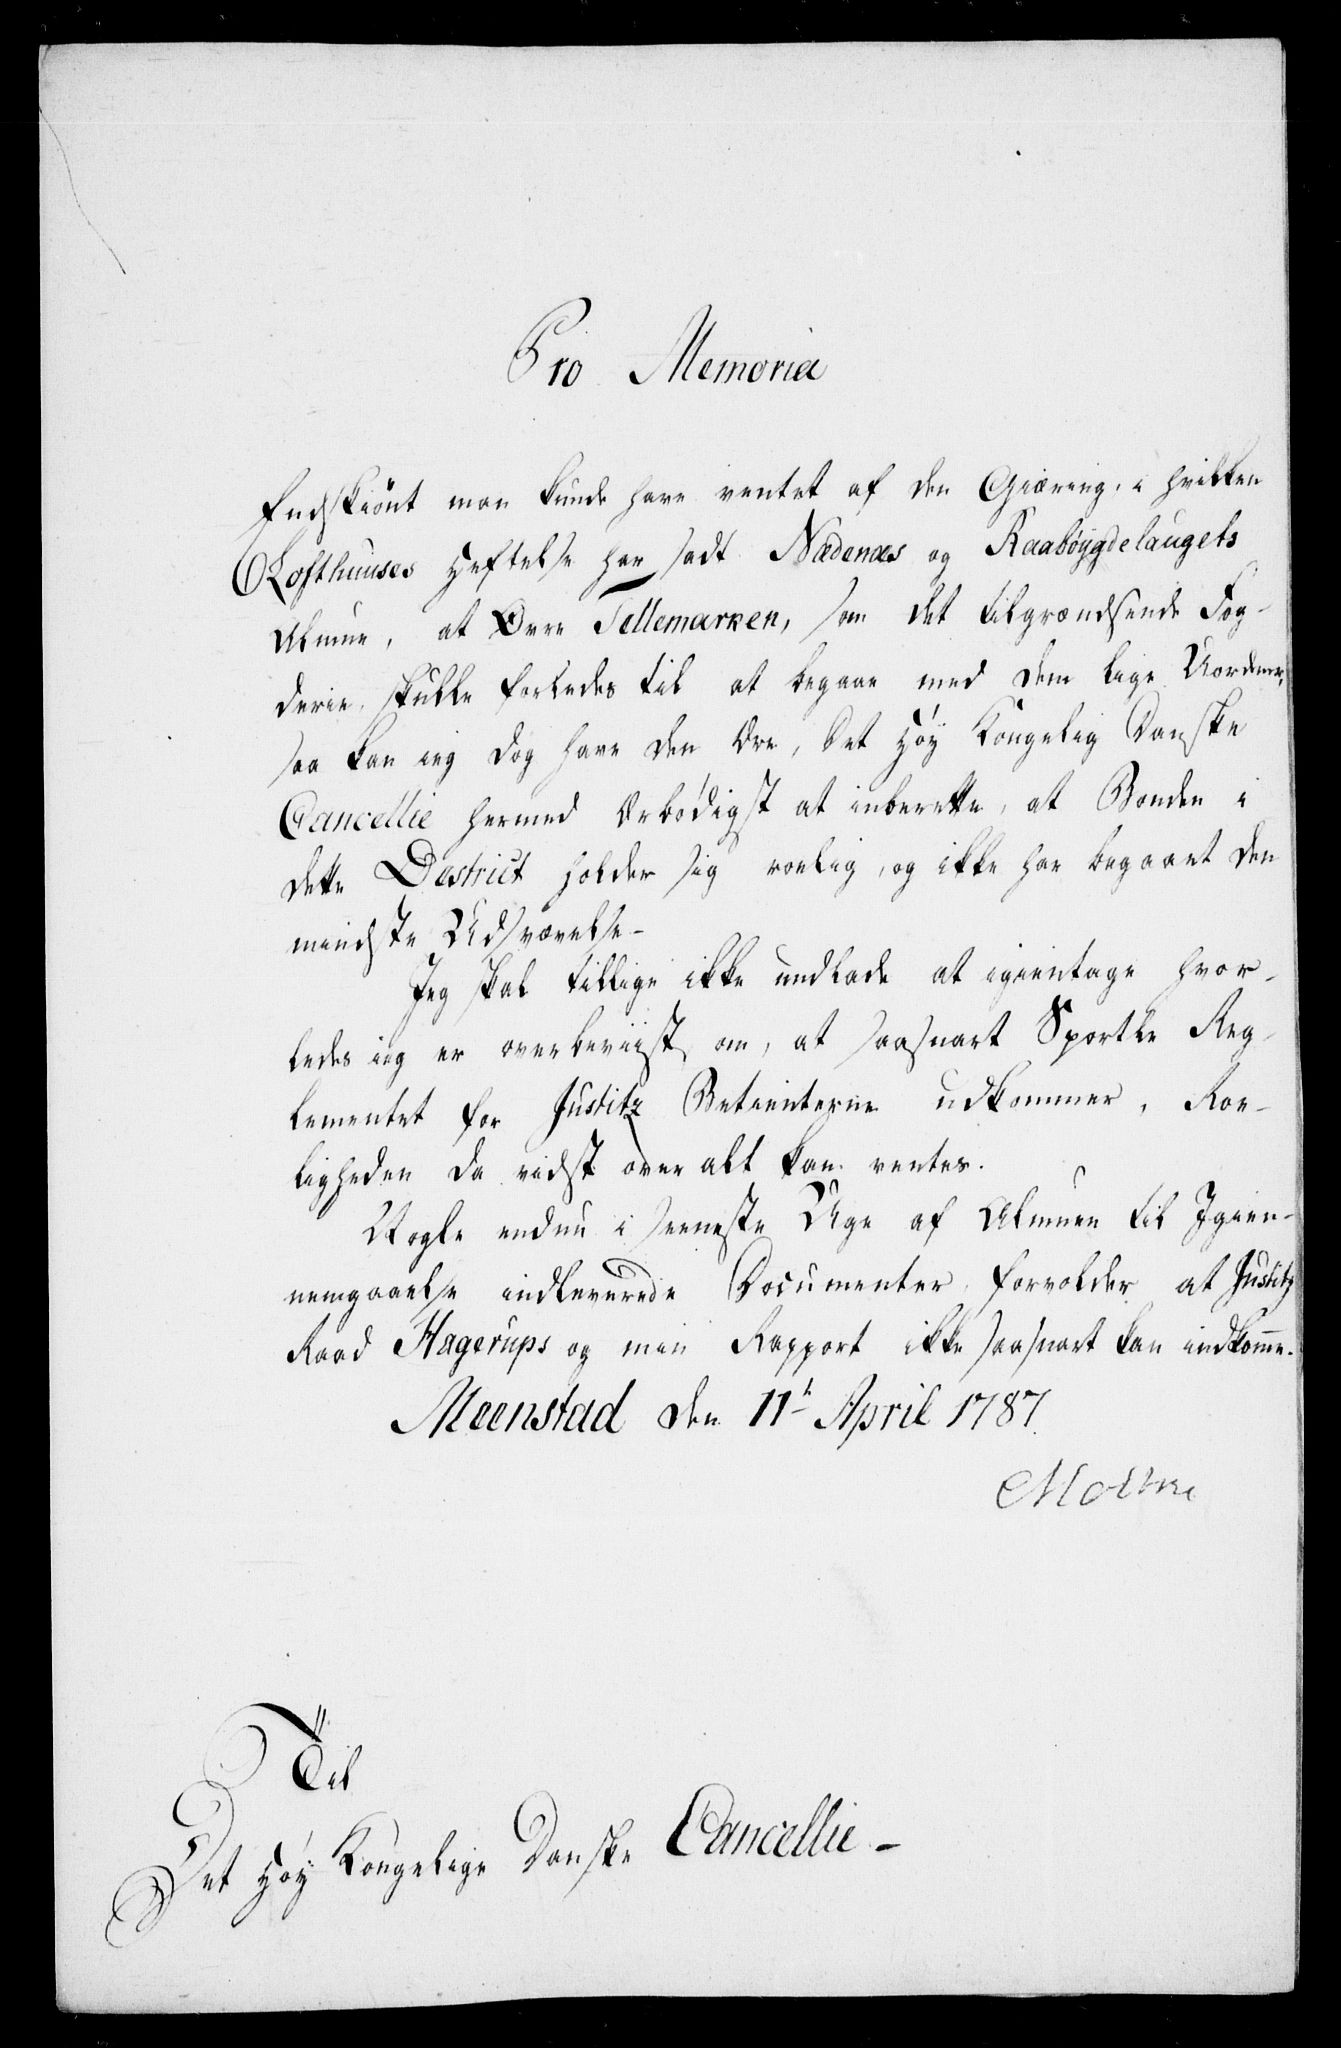 Pro Memoria
Endskiönt man kunde have ventet af den Giæring, i hvilken
Lofthuuses Heftelse har sadt Nædenæs og Raabøygdelaugets
Almue, at Øvre Tellemarken, som det tilgrændsende Fog-
derie, skulle forledes til at begaae med dem lige Uordener,
saa kan ieg dog have den Ære, Det Høy Kongelig Danske
Cancellie hermed Ærbödigst at inberette, at Bonden i
dette District holder sig roelig, og ikke har begaaet den
mindste Udsvævelse-
Jeg skal tillige ikke undlade at igientage hvor-
ledes ieg er overbeviist om, at saasnart Sportle Reg-
lementet for Justitz Betienterne udkommer, Roe-
ligheden da vidst over alt kan ventes.
Nogle endnu i seeneste Uge af Almuen til Igien-
nemgaaelse indleverede Documenter forvolder at Justitz
Raad Hagerups og min Rapport ikke saasnart kan indkomme.
Meenstad den 11t April 1787
Moltke
Til
Det Høy Kongelige Danske Cancellie-